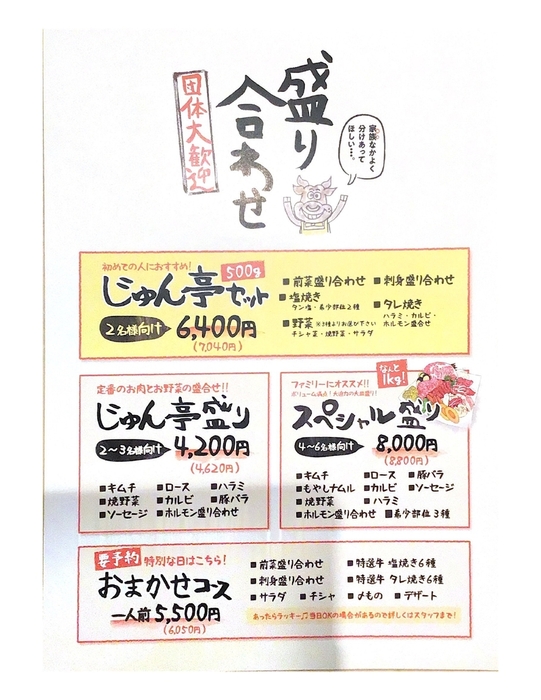 盛り
合わせ
団体大歓迎
家族なかよく
分けあって
ほしい…。
初めての人におすすめ!
500g
じゅん亭セット
2名様向け
6,400円
(7,040円)
■前菜盛り合わせ ■刺身盛り合わせ
■塩焼き
タン塩・希少部位2種
■タレ焼き
ハラミ・カルビ・
ホルモン盛合せ
■野菜 ※3種よりお選び下さい
チシャ菜・焼野菜・サラダ
定番のお肉とお野菜の盛合せ!!
じゅん亭盛り
2〜3名様向け
4,200円
(4,620円)
■キムチ ■ロース ■ハラミ
■焼野菜 ■カルビ ■豚バラ
■ソーセージ ■ホルモン盛り合わせ
なんと
1kg!
ファミリーにオススメ!!
ボリューム満点!大迫力の大皿盛り!
スペシャル盛り
4〜6名様向け
8,000円
(8,800円)
■キムチ ■ロース ■豚バラ
■もやしナムル ■カルビ ■ソーセージ
■焼野菜 ■ハラミ
■ホルモン盛り合わせ ■希少部位3種
要予約 特別な日はこちら!
おまかせコース
一人前 5,500円
(6,050円)
■前菜盛り合わせ ■特選牛 塩焼き6種
■刺身盛り合わせ ■特選牛 タレ焼き6種
■サラダ ■チシャ ■〆もの ■デザート
あったらラッキー♫当日OKの場合があるので詳しくはスタッフまで!